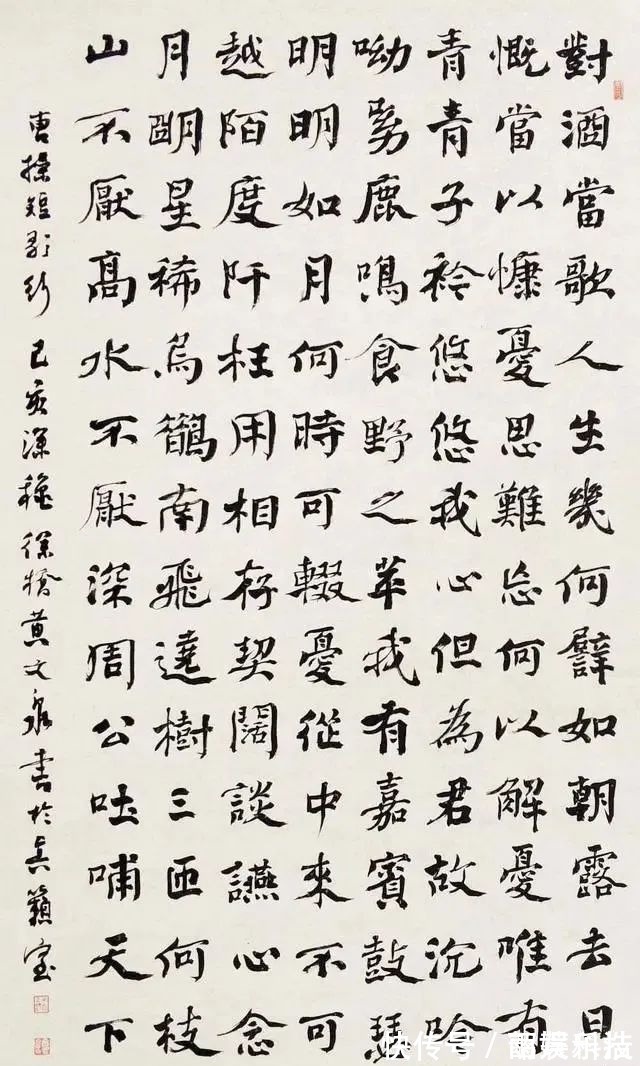 對酒當歌人生幾何譬如朝露去日
慨當以慷憂思難忘何以解憂唯有
青青子衿悠悠我心但為君故沉吟
呦呦鹿鳴食野之苹我有嘉賓鼓瑟
明明如月何時可輟憂從中來不可
越陌度阡枉用相存契闊談讌心念
月明星稀烏鵲南飛遶樹三匝何枝
山不厭高水不厭深周公吐哺天下
曹操短歌行 己亥深穐 黄文泉書於籟室
快传号 /